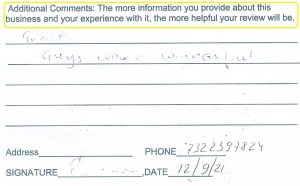 Additional Comments: The more information you provide about this
business and your experience with it, the more helpful your review will be.
Great
Guys were wonderful!
Address PHONE 7322397824
SIGNATURE ,DATE 12/9/21